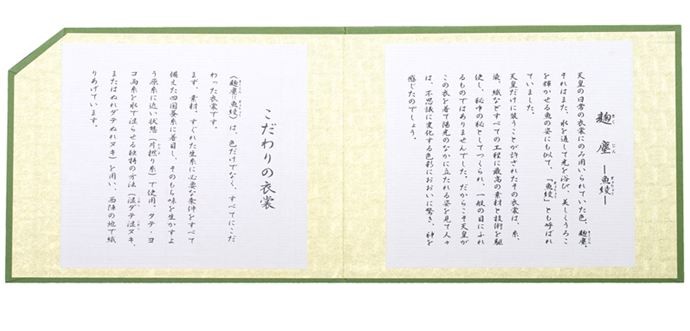 麹塵 ―魚綾―
天皇の日常の衣裳にのみ用いられていた色、麹塵。
それはまた、水を通して光を浴び、美しくうろこ
を輝かせる魚の姿にも似て、「魚綾」とも呼ばれ
ていました。
天皇だけに装うことが許されたその衣裳は、糸、
染、織などすべての工程に最高の素材と技術を駆
使し、秘中の秘としてつくられ、一般の目にふれ
るものではありませんでした。だからこそ天皇が
この衣を着て陽光のなかに立たれる姿を見て人々
は、不思議に変化する色彩におおいに驚き、神を
感じたのでしょう。
こだわりの衣裳
〈麹塵・魚綾〉は、色だけでなく、すべてにこだ
わった衣裳です。
まず、素材。すぐれた生糸に必要な条件をすべて
備えた四国蚕糸に着目し、そのもち味を生かすよ
う原糸に近い状態(片撚り糸)で使用。タテ・ヨ
コ両糸を水で湿らせる独特の方法(湿ダテ湿ヌキ、
またはぬれダテぬれヌキ)を用い、西陣の地で織
りあげています。